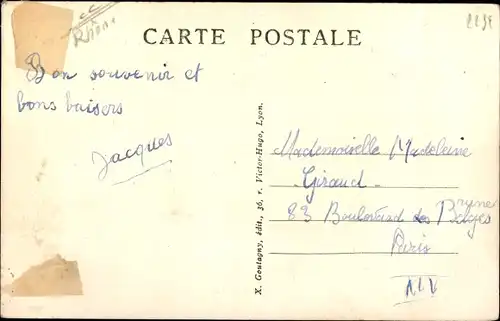 Rhône
CARTE POSTALE
Bon souvenir et
bons baisers
Jacques
X. Goutagny, édit., 36, r. Victor-Hugo, Lyon.
Mademoiselle Madeleine
Giraud
83 Boulevard des Belges
Paris